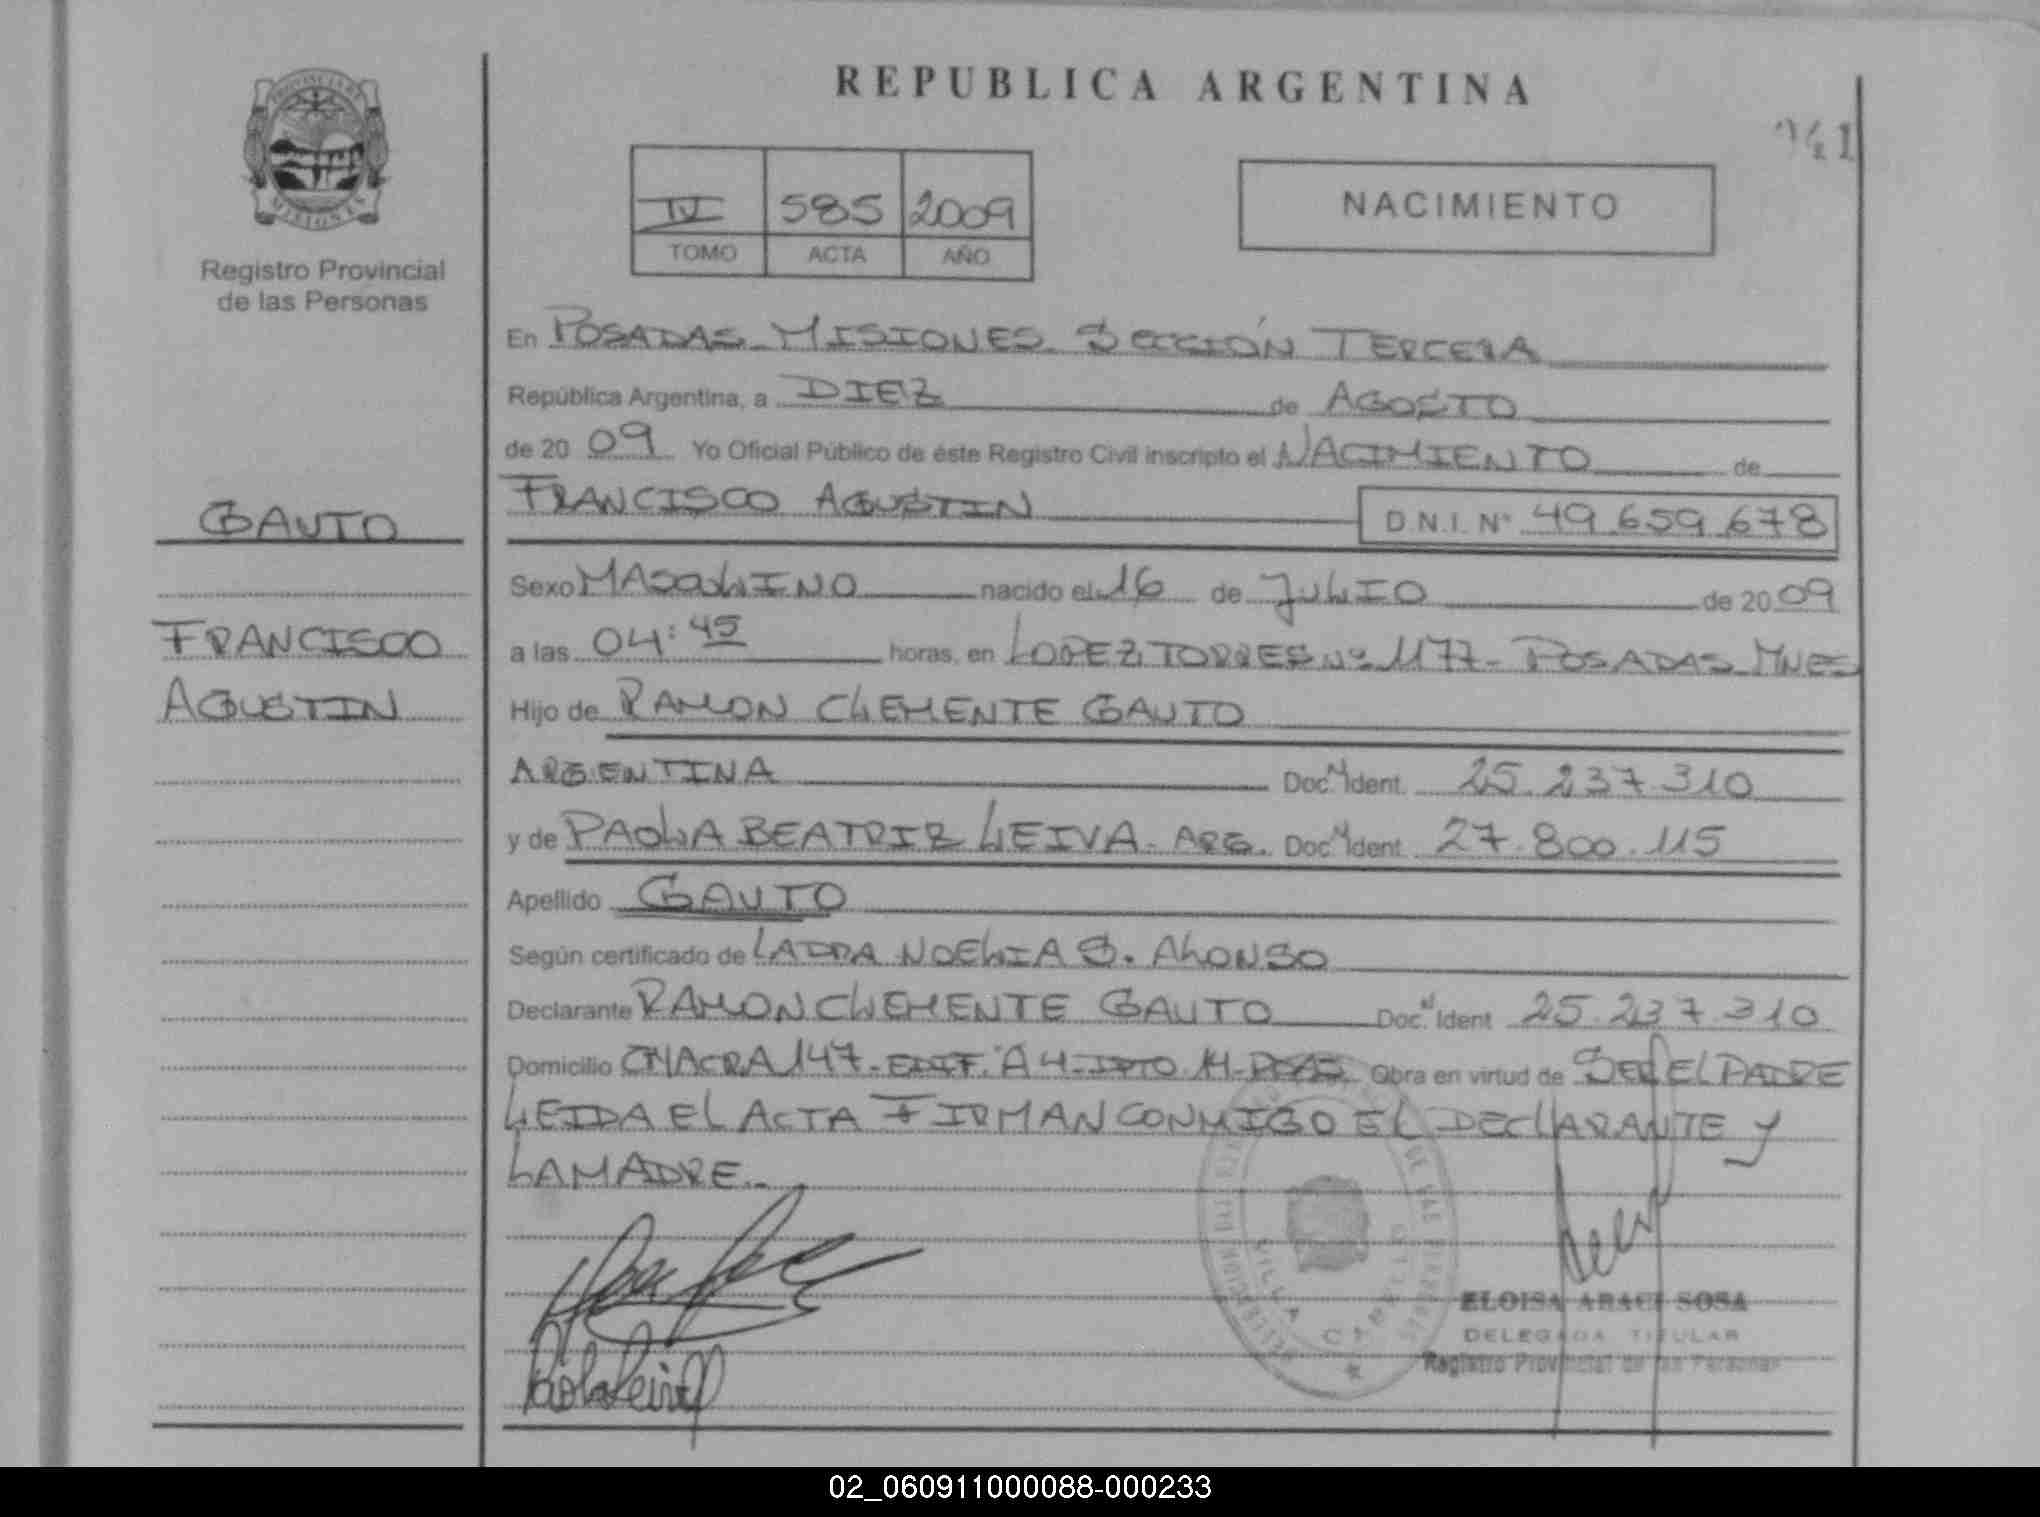 REPUBLICA ARGENTINA
PROVINCIA DE
MISIONES
Registro Provincial
de las Personas
IV 585 2009
TOMO ACTA AÑO
NACIMIENTO
En POSADAS - MISIONES. SECCIÓN TERCERA
República Argentina, a DIEZ de AGOSTO
de 20 09 Yo Oficial Público de éste Registro Civil inscripto el NACIMIENTO de
FRANCISCO AGUSTIN D.N.I. N° 49.659.678
GAUTO
FRANCISCO
AGUSTIN
Sexo MASCULINO nacido el 16 de JULIO de 20 09
a las 04:45 horas, en LOPEZ TORRES Nº 1177 - POSADAS MNES
Hijo de RAMON CLEMENTE GAUTO
ARGENTINA Doc. N Ident. 25.237.310
y de PAOLA BEATRIZ LEIVA - ARG. Doc. N Ident. 27.800.115
Apellido GAUTO
Según certificado de LADRA NOELIA S. ALONSO
Declarante RAMON CLEMENTE GAUTO Doc. N Ident 25.237.310
Domicilio CHACRA 147 - EDIF. A 4 - DPTO 14 - PDAS Obra en virtud de SER EL PADRE
LEIDA EL ACTA FIRMAN CONMIGO EL DECLARANTE Y
LA MADRE.-
Paola Leiva
VILLA CABELLO
ELOISA ARACI SOSA
DELEGADA TITULAR
Registro Provincial de las Personas
02_060911000088-000233